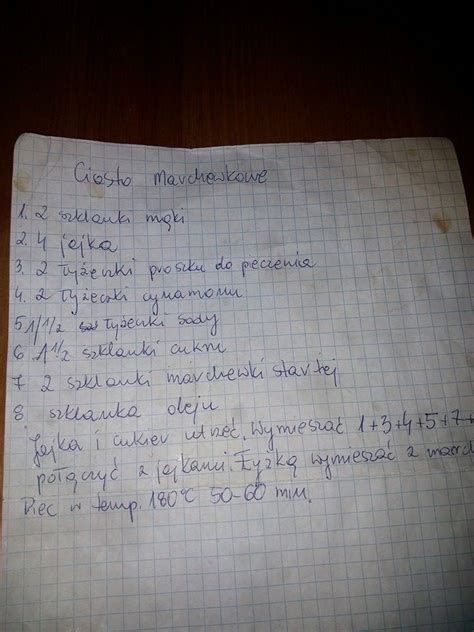 Ciasto marchewkowe
1. 2 szklanki mąki
2. 4 jajka
3. 2 łyżeczki proszku do pieczenia
4. 2 łyżeczki cynamonu
5 1/1/2 łyżeczki sody
6 1 1/2 szklanki cukru
7 2 szklanki marchewki startej
8. szklanka oleju
Jajka i cukier utrzeć. Wymieszać 1+3+4+5+7+
połączyć z jajkami. Łyżką wymieszać z
Piec w temp. 180°C 50-60 min.